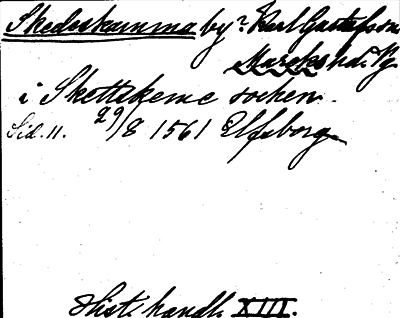 Skedeskamma by? Karl Gustafsson
Marks hd. Vg
i Skettskeme socken.
Sid. 11. 29/8 1561 Elfsborg
Hist. handl. XIII.